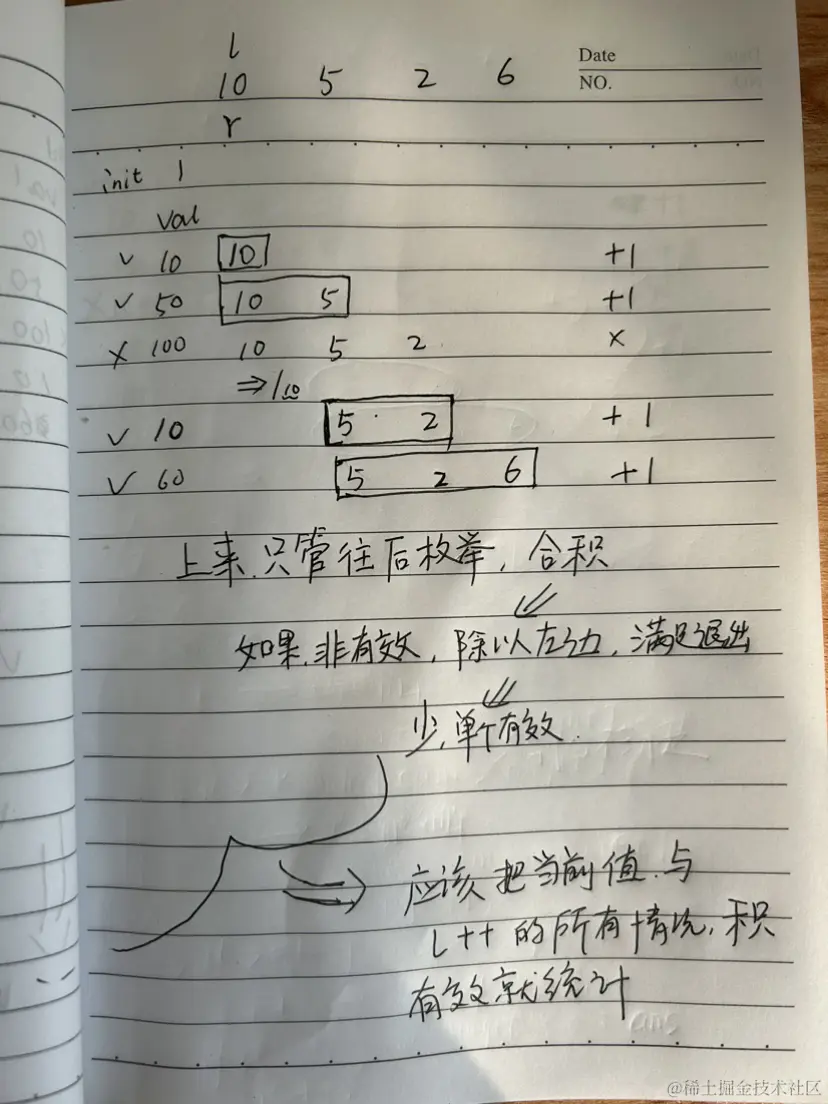 l
10 5 2 6
Date
NO.
r
init 1
val
✓ 10 10 +1
✓ 50 10 5 +1
× 100 10 5 2 ×
⇒/10
✓ 10 5 2 +1
✓ 60 5 2 6 +1
上来,只管往后枚举,合积
如果,非有效,除以左边,满足退出
少,单个有效.
应该把当前值与
l++的所有情况,积
有效就统计
@稀土掘金技术社区